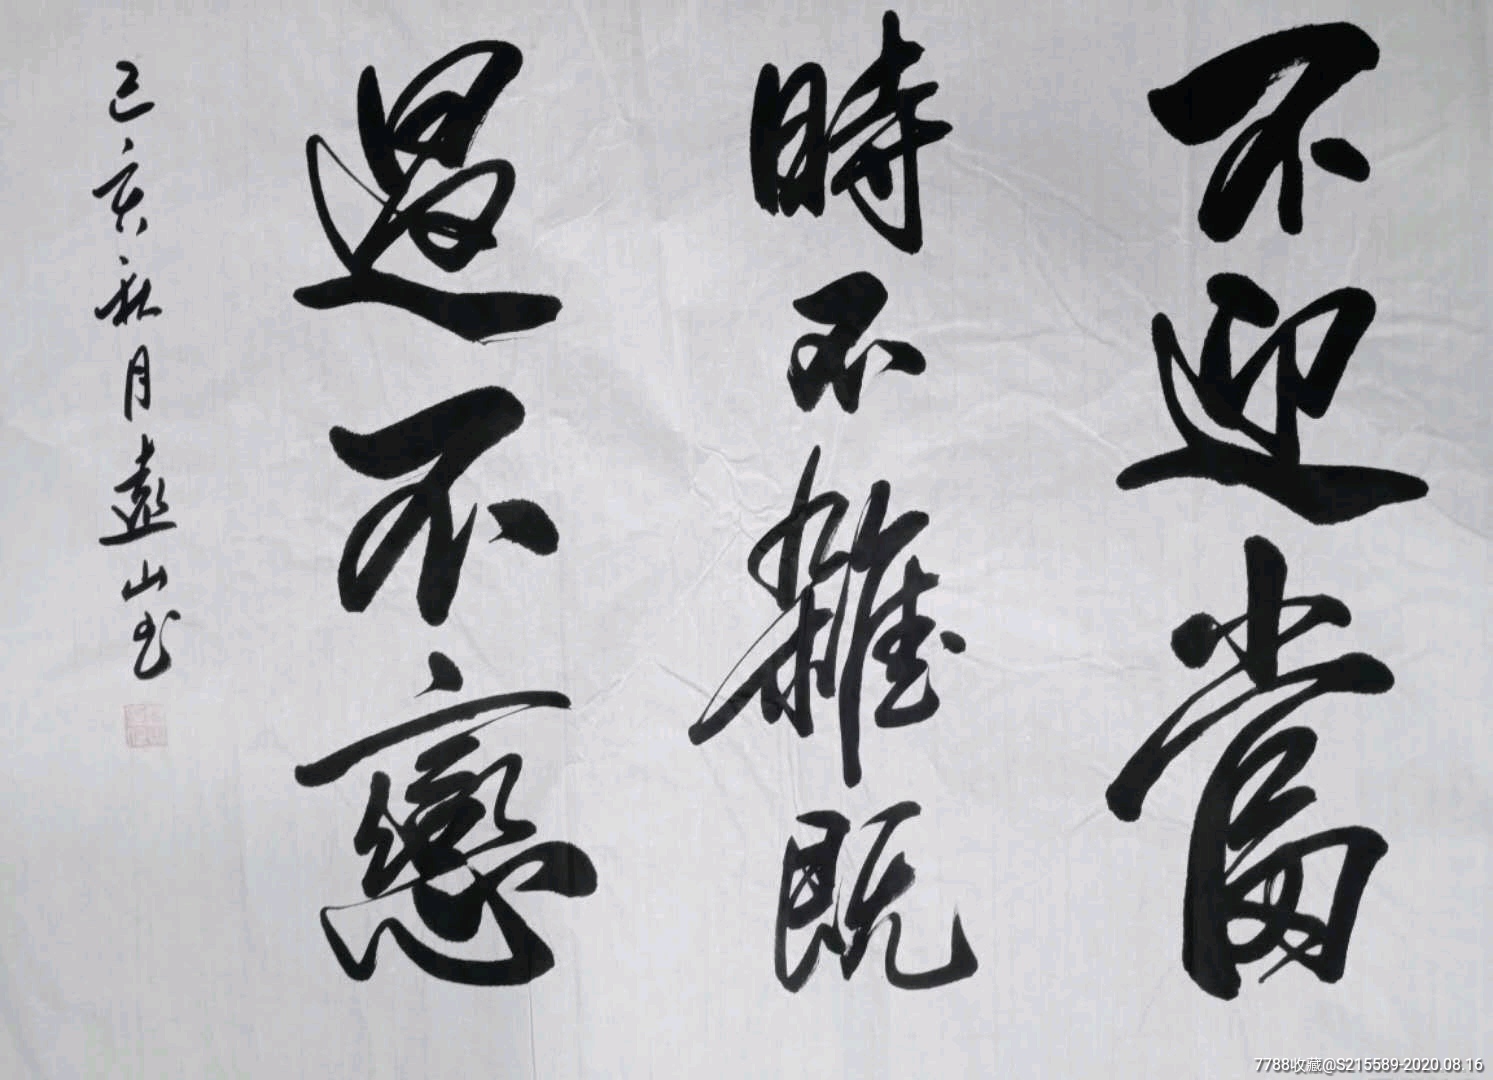 不迎當
時不雜既
過不戀
己亥秋月遠山书
7788收藏@S215589-2020.08.16